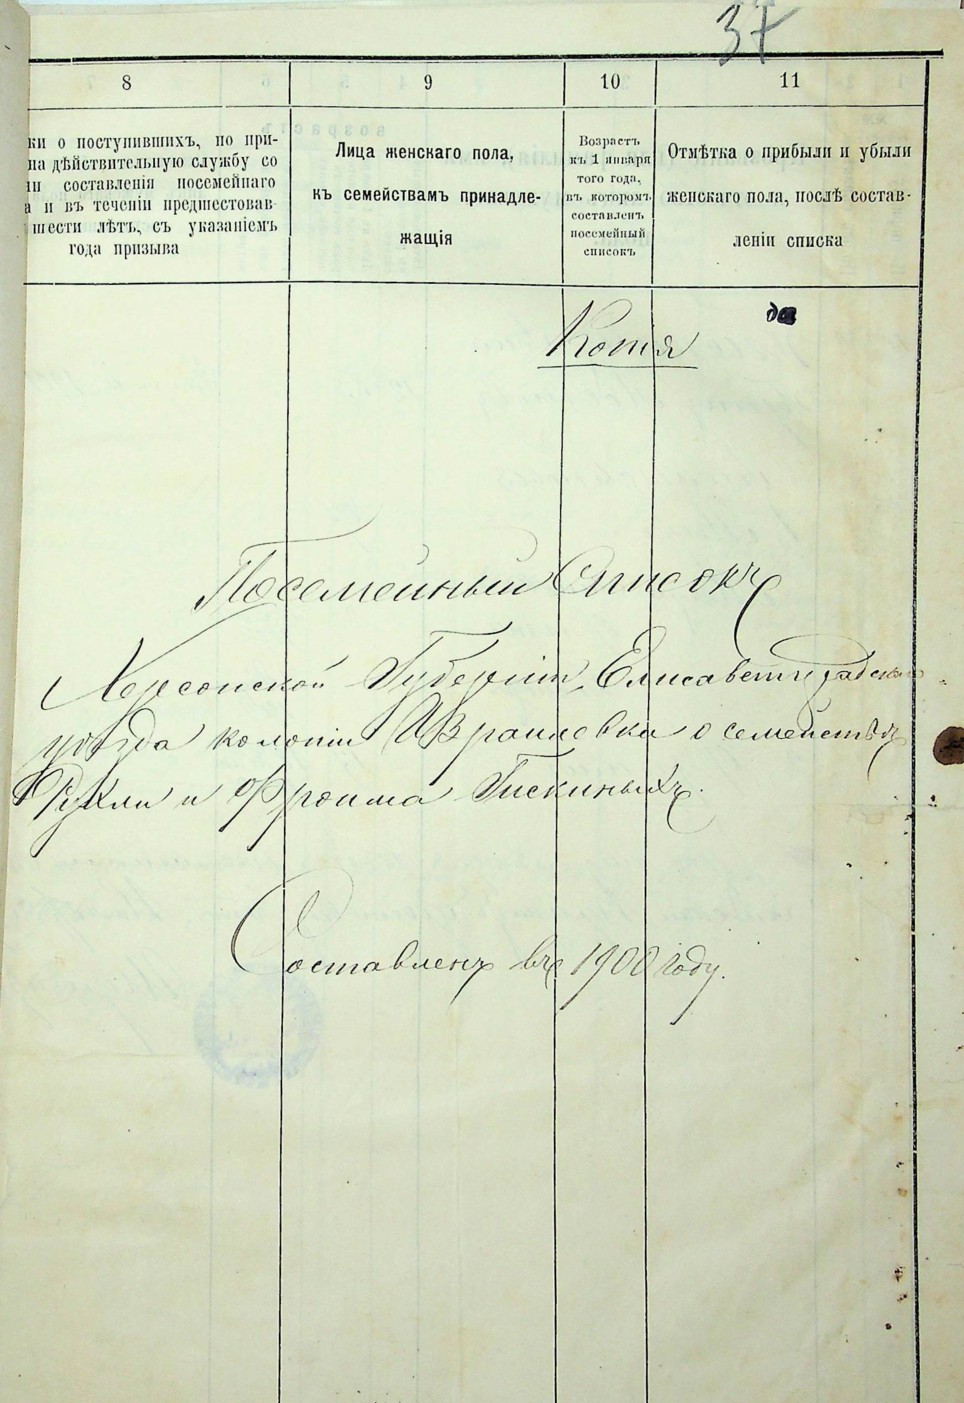 37
8
9
10
11
ки о поступившихъ, по при-
на дѣйствительную службу со
ни составленія посемейнаго
а и въ теченіи предшествовав-
шести лѣтъ, съ указаніемъ
года призыва
Лица женскаго пола,
къ семействамъ принадле-
жащія
Возрастъ
къ 1 января
того года,
въ которомъ
составленъ
посемейный
списокъ
Отмѣтка о прибыли и убыли
женскаго пола, послѣ состав-
леніи списка
Копія
Посемейный Списокъ
Херсонской Губерніи, Елисаветградскаго
уѣзда колоніи Израиловки о семействѣ
Рухли и Фроима Гискиныхъ.
Составленъ въ 1900 году.